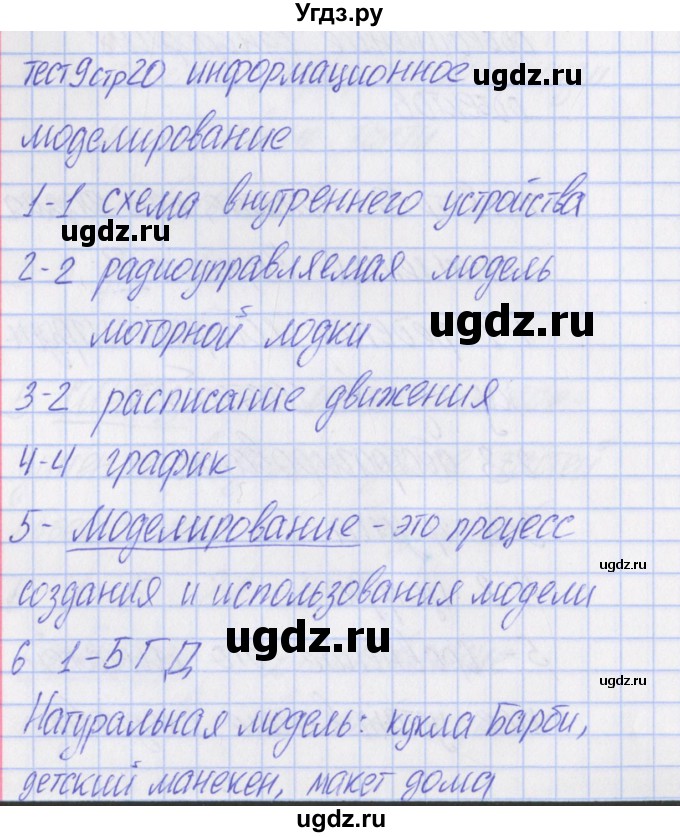 Угдз.ру
тест9стр20 информационное
моделирование
1-1 схема внутреннего устройства
ugdz.ru
2-2 радиоуправляемая модель
ugdz.ru
моторной лодки
3-2 расписание движения
4-4 график
5- Моделирование - это процесс
ugdz.ru
создания и использования модели
ugdz.ru
6 1-БГД
ugdz.ru
Натуральная модель: кукла Барби,
детский манекен, макет дома
ugdz.ru